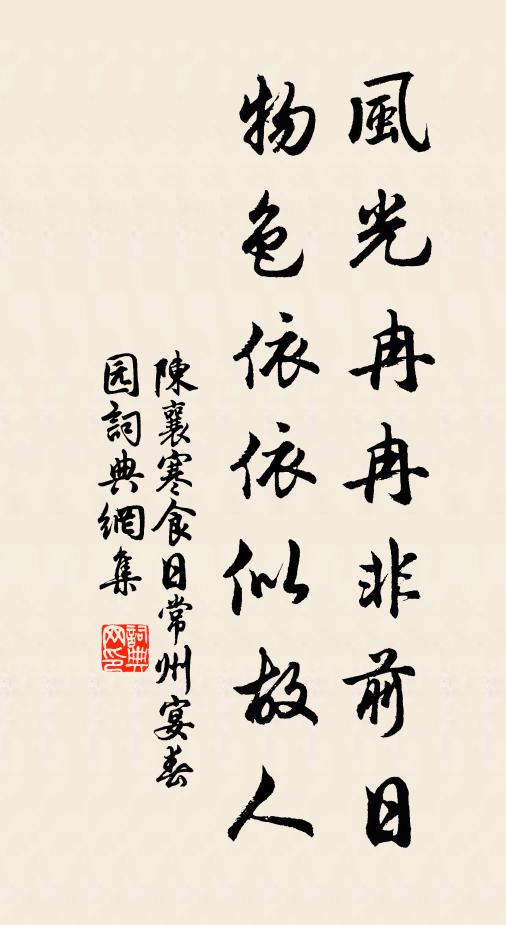 風光冉冉非前日
物色依依似故人
陳襄寒食日常州宴春
园詞典網集
詞典网印